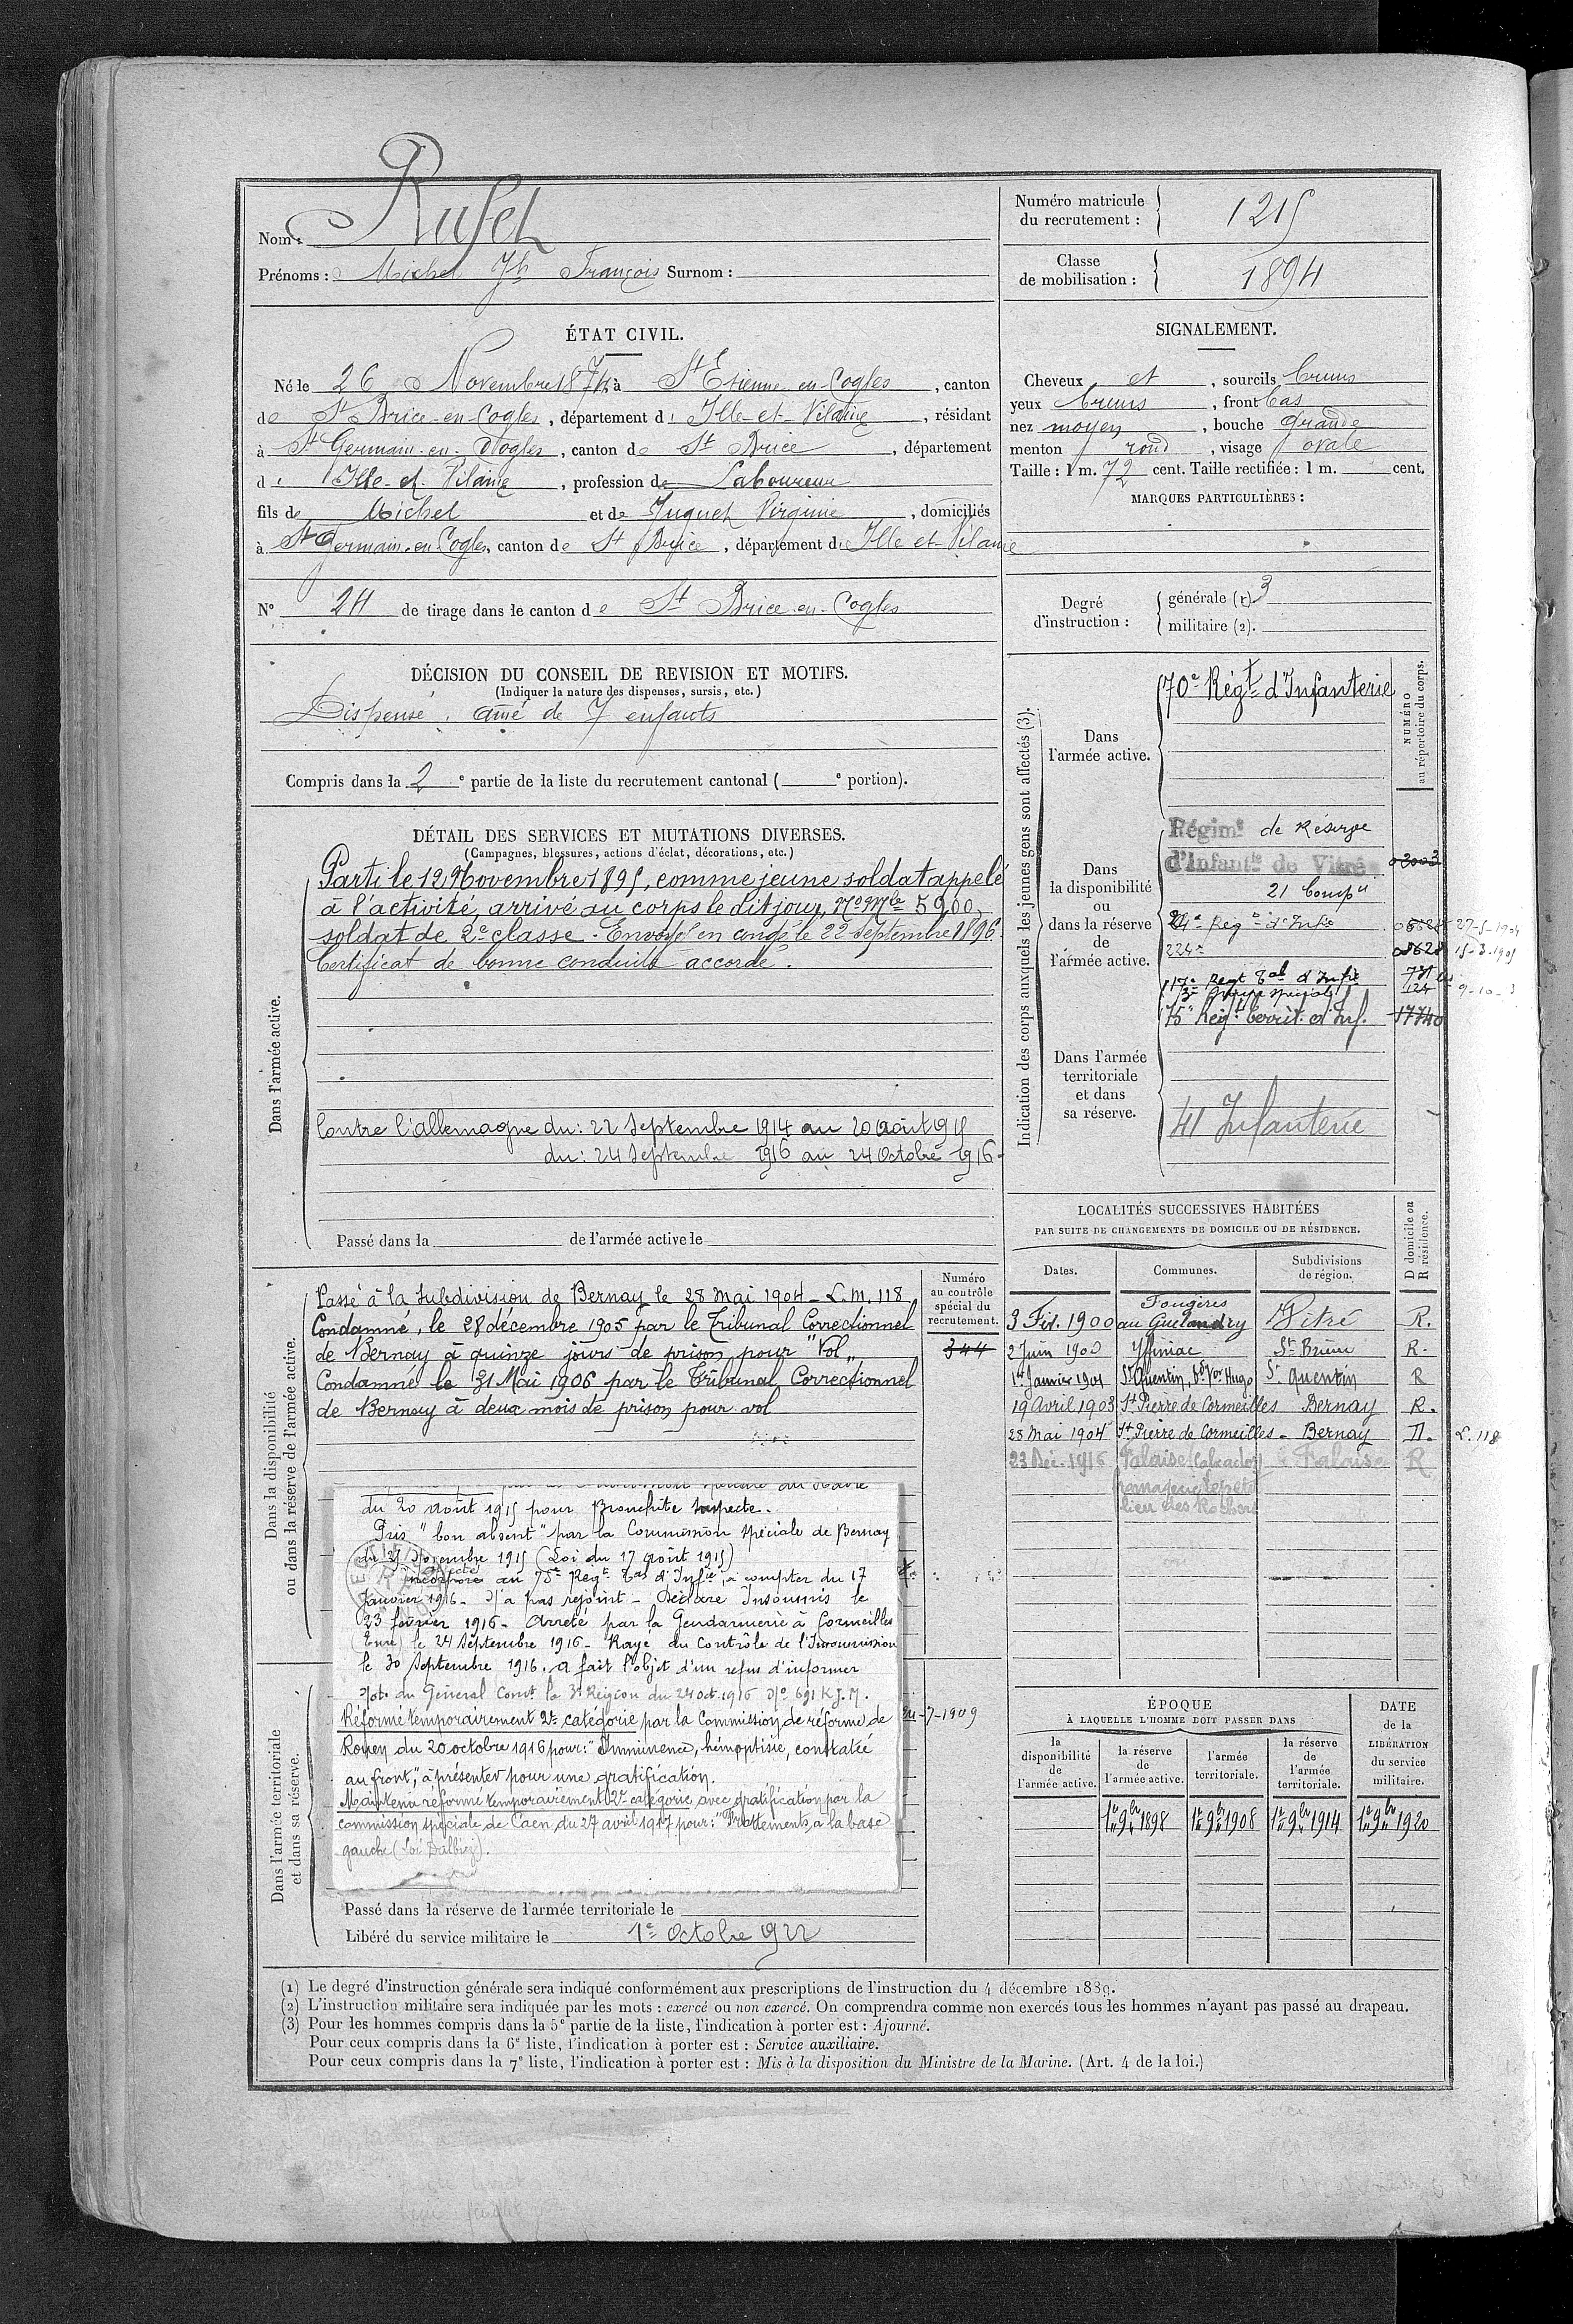 Nom : Rufet
Prénoms : Michel Jh François Surnom :
Numéro matricule du recrutement : 1215
Classe de mobilisation : 1894
ÉTAT CIVIL.
Né le 26 Novembre 1874, à St Etienne-en-Cogles, canton
de St Brice-en-Cogles, département d' Ille-et-Vilaine, résidant
à St Germain-en-Cogles, canton de St Brice, département
d' Ille-et-Vilaine, profession de Laboureur
fils de Michel et de Juguet Virginie, domiciliés
à St Germain-en-Cogles, canton de St Brice, département d' Ille et Vilaine
N° 24 de tirage dans le canton de St Brice-en-Cogles
SIGNALEMENT.
Cheveux et, sourcils bruns
yeux bruns, front bas
nez moyen, bouche grande
menton rond, visage ovale
Taille : 1 m. 72 cent. Taille rectifiée : 1 m. cent.
MARQUES PARTICULIÈRES :
Degré d'instruction :
générale (1) 3
militaire (2).
DÉCISION DU CONSEIL DE REVISION ET MOTIFS.
(Indiquer la nature des dispenses, sursis, etc.)
Dispensé. aîné de 7 enfants
Compris dans la 2e partie de la liste du recrutement cantonal ( e portion).
DÉTAIL DES SERVICES ET MUTATIONS DIVERSES.
(Campagnes, blessures, actions d'éclat, décorations, etc.)
Dans l'armée active.
Parti le 12 Novembre 1895, comme jeune soldat appelé
à l'activité, arrivé au corps le dit jour, No Mle 5900,
soldat de 2e classe. Envoyé en congé le 22 Septembre 1896.
Certificat de bonne conduite accordé.
Contre l'allemagne du : 22 Septembre 1914 au 20 Août 1915
du : 24 Septembre 1916 au 24 Octobre 1916-
Passé dans la de l'armée active le
Indication des corps auxquels les jeunes gens sont affectés (3).
NUMÉRO au répertoire du corps.
Dans l'armée active.
70e Régt d'Infanterie
Dans la disponibilité ou dans la réserve de l'armée active.
Régimt de Réserve
d'Infantie de Vitré
21 Compie
24e Régt d'Infie 27-5-1904
224e 15-3-1905
17e Regt Tal d'Infie
3e Groupe spécial
Dans l'armée territoriale et dans sa réserve.
75e Régt territ. d'Inf. 17740
41 Infanterie
Dans la disponibilité ou dans la réserve de l'armée active.
Numéro au contrôle spécial du recrutement.
344
Passé à la Subdivision de Bernay le 28 Mai 1904 - L.M. 118
Condamné, le 28 décembre 1905 par le Tribunal Correctionnel
de Bernay à quinze jours de prison pour "Vol"
Condamné le 31 Mai 1906 par le Tribunal Correctionnel
de Bernay à deux mois de prison pour vol
du 20 août 1915 pour Bronchite suspecte.
Pris "bon absent" par la Commission spéciale de Bernay
du 25 Novembre 1915 (Loi du 17 août 1915)
affecté
incorporé au 75e Régt Tal d'Infie, à compter du 17
Janvier 1916 - N'a pas rejoint - Déclaré Insoumis le
23 février 1916 - Arreté par la Gendarmerie à Cormeilles
(Eure) le 24 Septembre 1916 - Rayé du Contrôle de l'Insoumission
le 30 Septembre 1916. a fait l'objet d'un refus d'informer
Note du Général Comt la 3e Région du 24 Oct. 1916 No 691 K J.M.
Réformé temporairement 2e catégorie par la Commission de réforme de
Rouen du 20 octobre 1916 pour : "Imminence, hémoptisie, constatée
au front", à présenter pour une gratification.
Maintenu réformé temporairement 2e catégorie avec gratification par la
commission spéciale de Caen du 27 avril 1917 pour : "Frottements à la base
gauche (Loi Dalbiez).
-7-1909
Dans l'armée territoriale et dans sa réserve.
Passé dans la réserve de l'armée territoriale le
Libéré du service militaire le 1er Octobre 1922
LOCALITÉS SUCCESSIVES HABITÉES
PAR SUITE DE CHANGEMENTS DE DOMICILE OU DE RÉSIDENCE.
Dates. Communes. Subdivisions de région. D domicile ou R résidence.
3 Fév. 1900 Fougères au Guelandry Vitré R.
2 Juin 1900 Yffiniac St Brieuc R.
1er Janvier 1901 St Quentin, Bd Vor Hugo St Quentin R
19 Avril 1903 St Pierre de Cormeilles Bernay R.
28 Mai 1904 St Pierre de Cormeilles - Bernay D. L. 118
23 Déc. 1916 Falaise (Calvados) Falaise R
lieu des Rochers
ÉPOQUE
À LAQUELLE L'HOMME DOIT PASSER DANS
la disponibilité de l'armée active. la réserve de l'armée active. l'armée territoriale. la réserve de l'armée territoriale.
DATE de la LIBÉRATION du service militaire.
1er 9bre 1898 1er 9bre 1908 1er 9bre 1914 1er 9bre 1920
(1) Le degré d'instruction générale sera indiqué conformément aux prescriptions de l'instruction du 4 décembre 1889.
(2) L'instruction militaire sera indiquée par les mots : exercé ou non exercé. On comprendra comme non exercés tous les hommes n'ayant pas passé au drapeau.
(3) Pour les hommes compris dans la 5e partie de la liste, l'indication à porter est : Ajourné.
Pour ceux compris dans la 6e liste, l'indication à porter est : Service auxiliaire.
Pour ceux compris dans la 7e liste, l'indication à porter est : Mis à la disposition du Ministre de la Marine. (Art. 4 de la loi.)